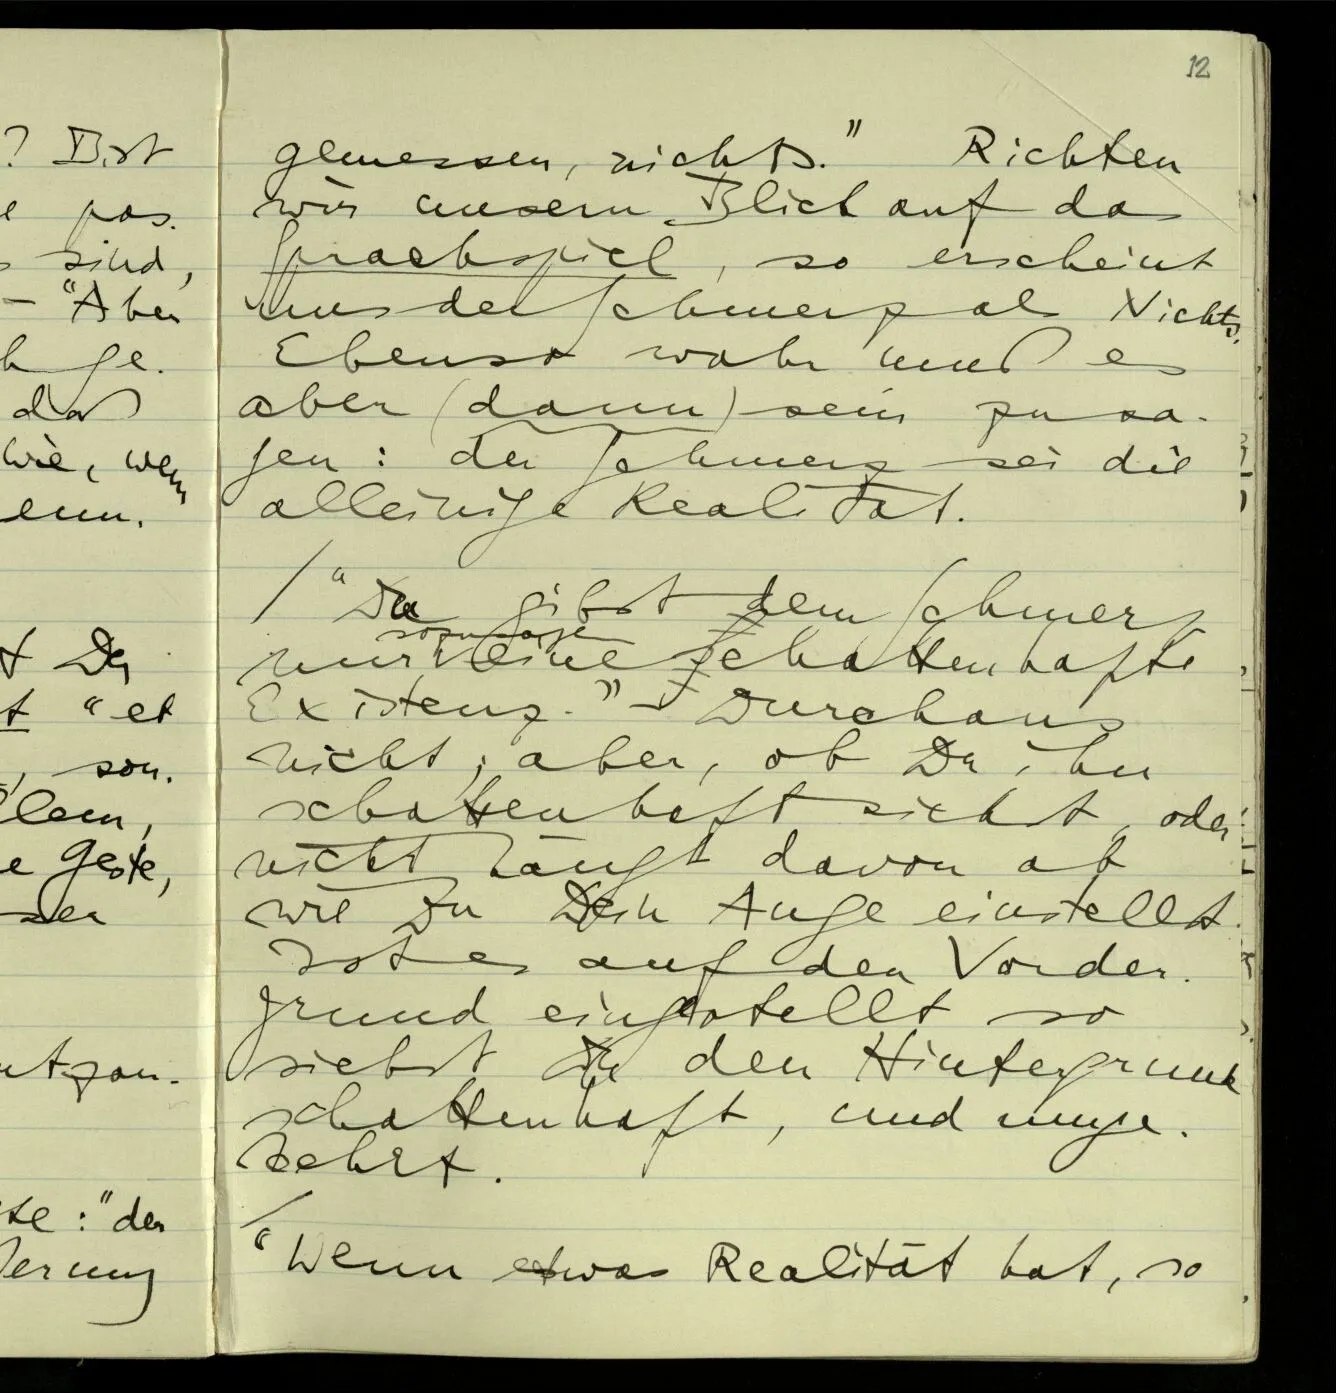 12
? Bist
e pas.
sind,
– "Aber
h ge.
daß
wie, wenn
enn.
t Du
t "et
, son.
llem,
e Geste,
ser
ntzau.
ste: "der
derung
gemessen, nichts." Richten
wir unsern Blick auf das
Sprachspiel, so erscheint
uns der Schmerz als Nichts.
Ebenso wahr muß es
aber (dann) sein zu sa-
gen: der Schmerz sei die
alleinige Realität.
/ "Du gibst dem Schmerz
sozusagen
nur eine schattenhafte
Existenz." – Durchaus
nicht; aber, ob Du ihn
schattenhaft siehst, oder
nicht hängt davon ab
wie Du Dein Auge einstellst.
Ist es auf den Vorder-
grund eingestellt so
siehst Du den Hintergrund
schattenhaft, und umge-
kehrt.
/
"Wenn etwas Realität hat, so